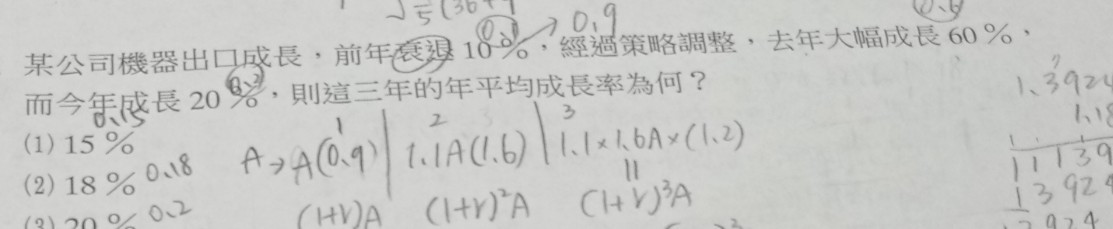 √1/5(36+
0.1 → 0.9
0.6
某公司機器出口成長，前年衰退 10 %，經過策略調整，去年大幅成長 60 %，
0.2
而今年成長 20 %，則這三年的年平均成長率為何？
(1) 15 % 0.15
(2) 18 % 0.18
(3) 20 % 0.2
1 2 3
A→A(0.9) | 1.1A(1.6) | 1.1×1.6A×(1.2)
=
(1+r)A (1+r)²A (1+r)³A
1.3924
1.18
11139
13924